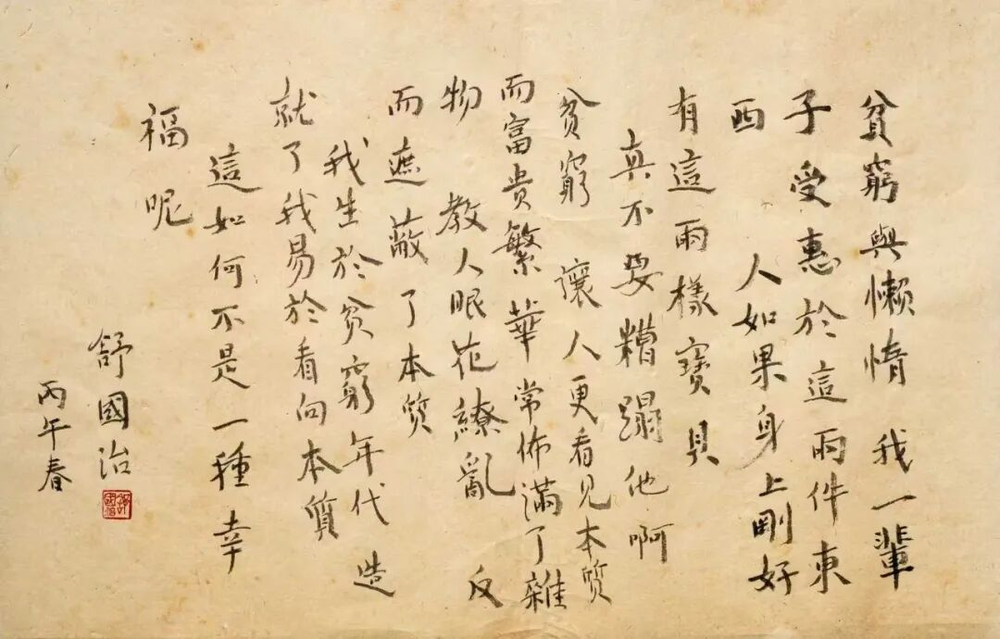 貧窮與懶惰 我一輩
子受惠於這兩件東
西 人如果身上剛好
有這兩樣寶貝
真不要糟蹋他啊
貧窮 讓人更看見本质
而富贵繁華常佈滿了雜
物 教人眼花繚亂 反
而遮蔽了本质
我生於貧窮年代 造
就了我易於看向本質
這如何不是一種幸
福呢
舒國治
丙午春